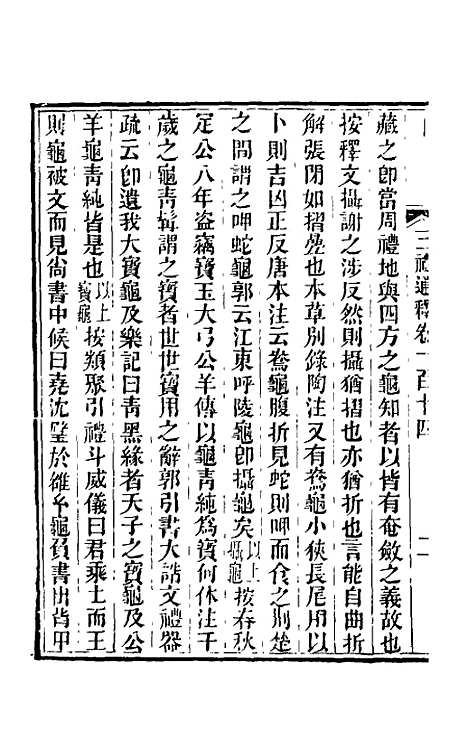 三禮通釋卷一百十四
藏之卽當周禮地與四方之龜知者以皆有奄斂之義故也
按釋文攝謝之涉反然則攝猶摺也亦猶折也言能自曲折
解張閉如摺疊也本草別錄陶注又有鴦龜小狹長尾用以
卜則吉凶正反唐本注云鴦龜腹折見蛇則呷而食之荆楚
之間謂之呷蛇龜郭云江東呼陵龜卽攝龜矣以上攝龜按春秋
定公八年盜竊寶玉大弓公羊傳以龜靑純爲寶何休注千
歲之龜靑髯謂之寶者世世寶用之辭郭引書大誥文禮器
疏云卽遺我大寶龜及樂記曰靑黑緣者天子之寶龜及公
羊龜靑純皆是也以上寶龜按類聚引禮斗威儀曰君乘土而王
則龜被文而見尙書中候曰堯沈璧於雒予龜負書出背甲